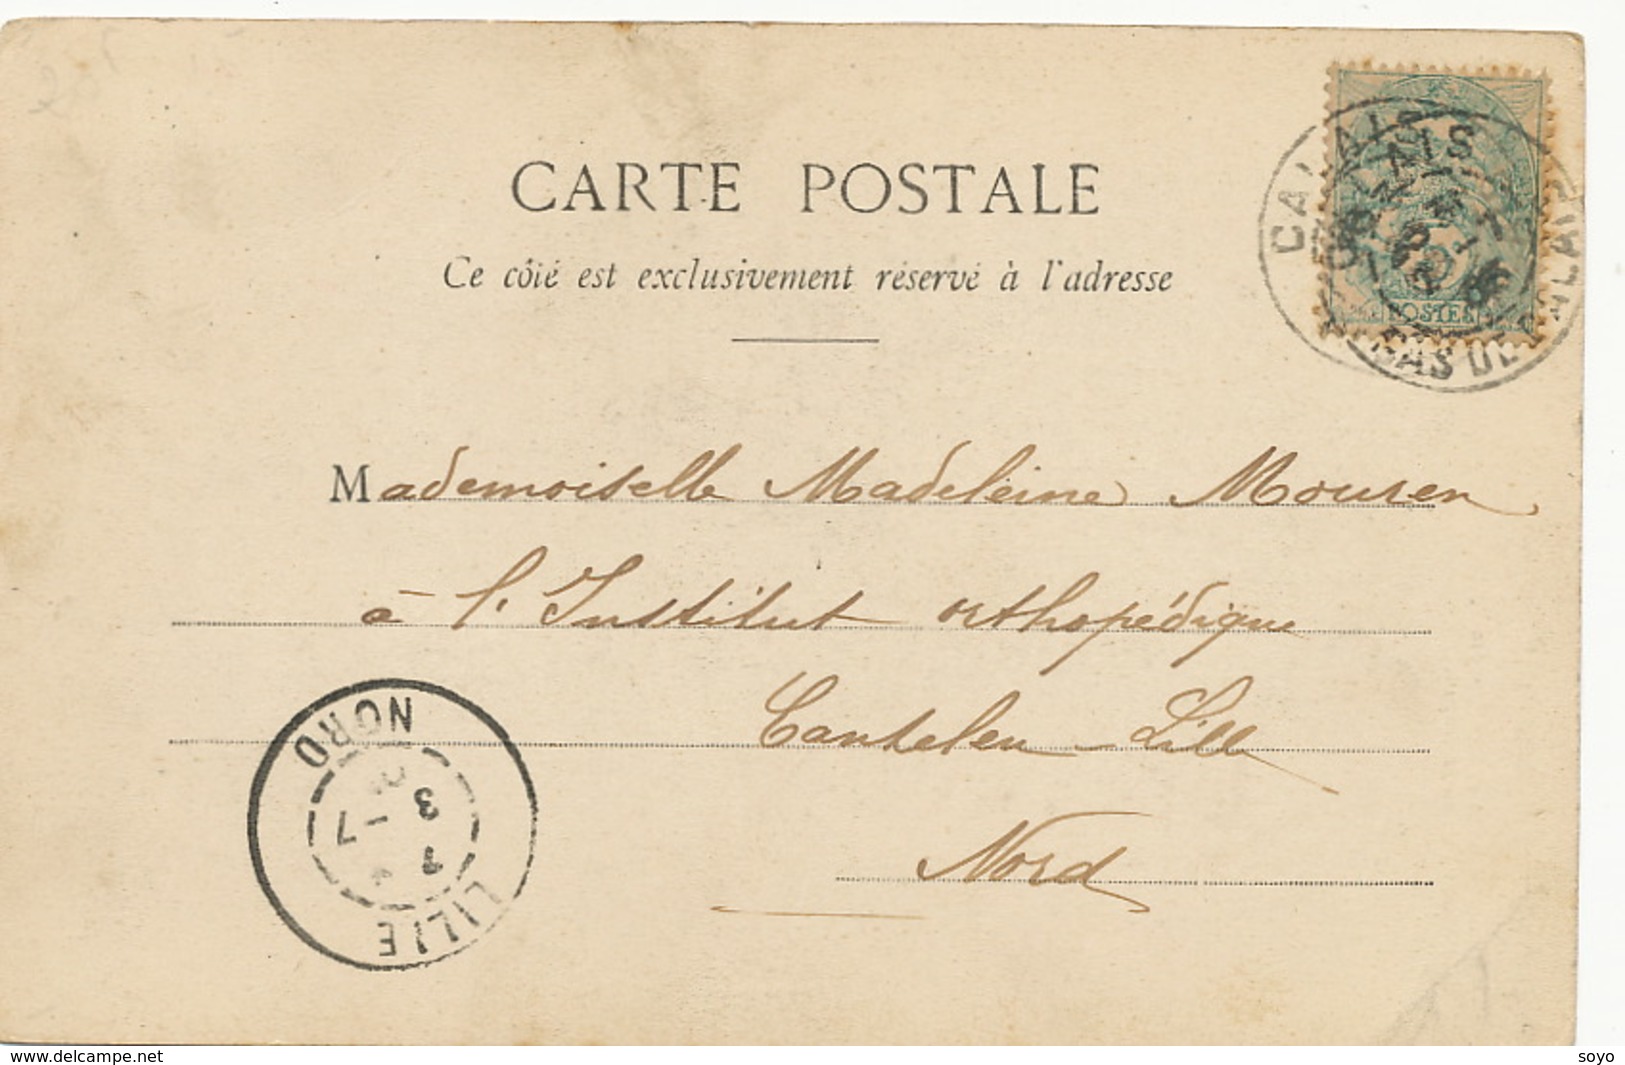 CARTE POSTALE
Ce côté est exclusivement réservé à l'adresse
CALAIS
PAS DE CALAIS
POSTES
Mademoiselle Madeleine Mouren
à l'Institut orthopédique
Canteleu - Lille
Nord
LILLE
1
3 - 7
NORD
www.delcampe.net
soyo